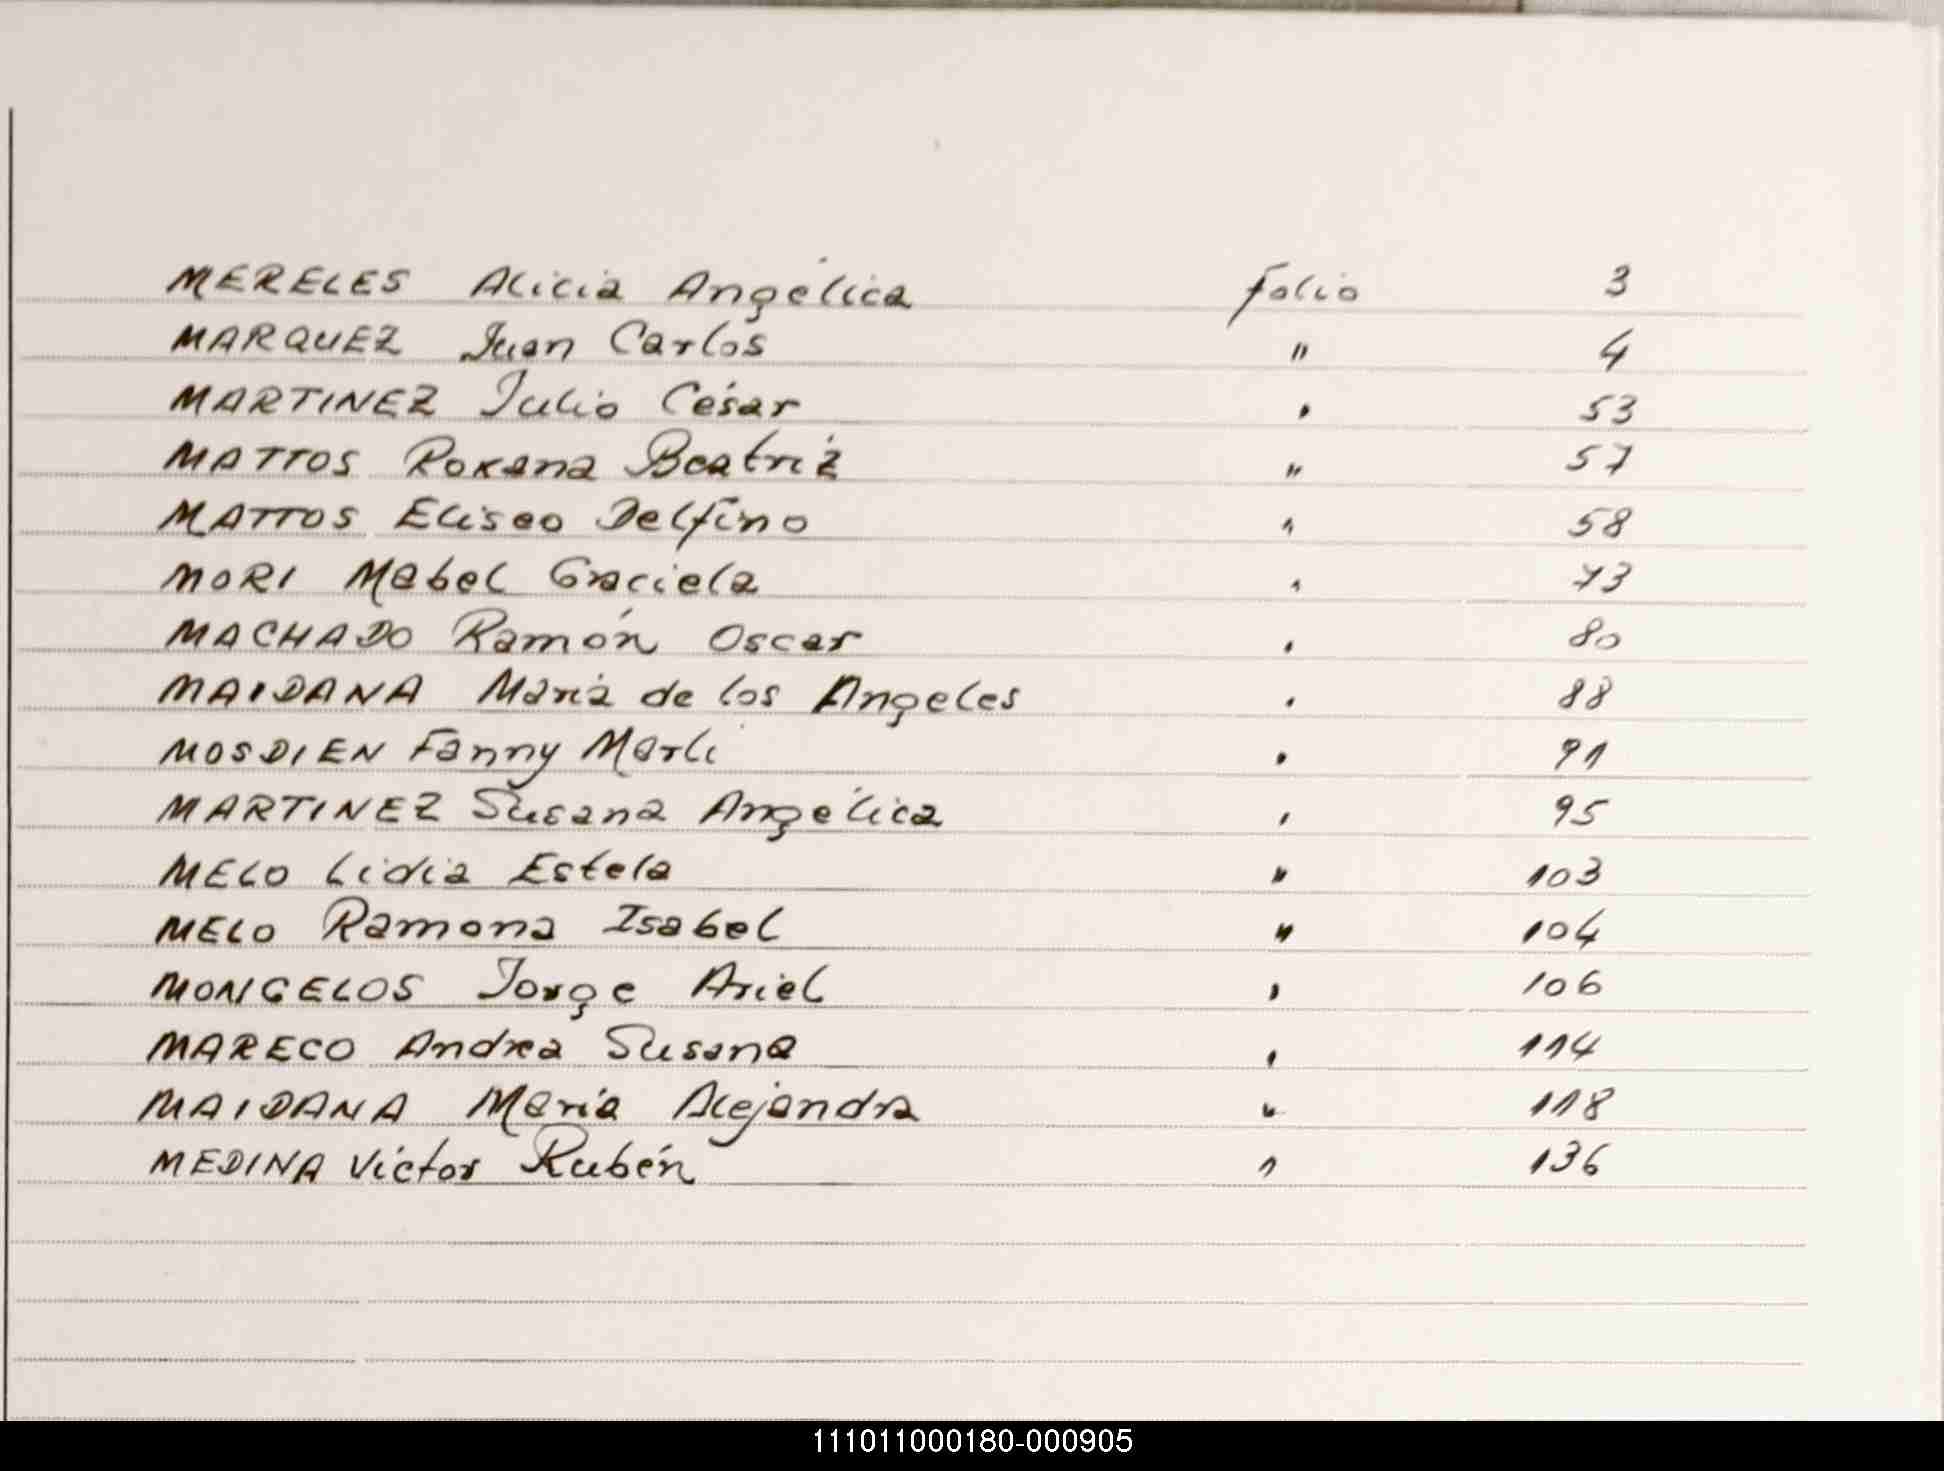 MERELES Alicia Angélica folio 3
MARQUEZ Juan Carlos " 4
MARTINEZ Julio César " 53
MATTOS Roxana Beatriz " 57
MATTOS Eliseo Delfino " 58
MORI Mabel Graciela " 73
MACHADO Ramón Oscar " 80
MAIDANA María de los Angeles " 88
MOSDIEN Fanny Marlí " 91
MARTINEZ Susana Angélica " 95
MELO Lidia Estela " 103
MELO Ramona Isabel " 104
MONGELOS Jorge Ariel " 106
MARECO Andrea Susana " 114
MAIDANA María Alejandra " 118
MEDINA Victor Rubén " 136
111011000180-000905